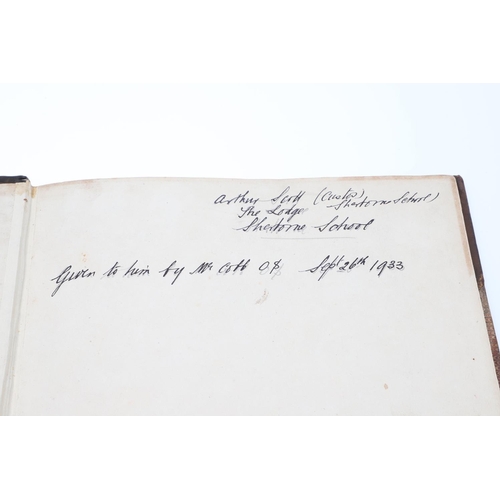 Arthur Scott (Custos Sherborne School)
The Lodge
Sherborne School
Given to him by Mr Cobb Sept 26th 1933